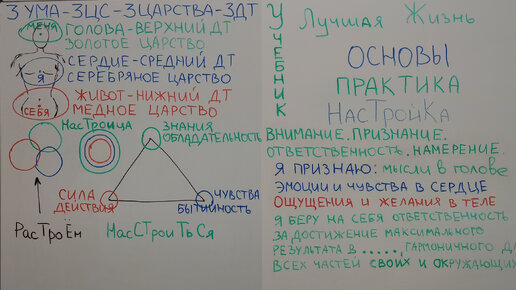 3 УМА -3ЦС-3ЦАРСТВА-3ДТ
МЕНЯ
ГОЛОВА-ВЕРХНИЙ ДТ
ЗОЛОТОЕ ЦАРСТВО
СЕРДЦЕ-СРЕДНИЙ ДТ
Я
СЕРЕБРЯНОЕ ЦАРСТВО
ЖИВОТ-НИЖНИЙ ДТ
СЕБЯ
МЕДНОЕ ЦАРСТВО
НасТРОИЦА
ЗНАНИЯ
ОБЛАДАТЕЛЬНОСТЬ
СИЛА
ДЕЙСТВИЯ
ЧУВСТВА
БЫТИЙНОСТЬ
РасТРОЁН
НасСТРОИТЬСЯ
УЧЕБНИК
Лучшая Жизнь
ОСНОВЫ
ПРАКТИКА
НасТРОЙКа
ВНИМАНИЕ. ПРИЗНАНИЕ.
ОТВЕТСТВЕННОСТЬ. НАМЕРЕНИЕ.
Я ПРИЗНАЮ: МЫСЛИ В ГОЛОВЕ
ЭМОЦИИ И ЧУВСТВА В СЕРДЦЕ
ОЩУЩЕНИЯ И ЖЕЛАНИЯ В ТЕЛЕ
Я БЕРУ НА СЕБЯ ОТВЕТСТВЕННОСТЬ
ЗА ДОСТИЖЕНИЕ МАКСИМАЛЬНОГО
РЕЗУЛЬТАТА В ....., ГАРМОНИЧНОГО Д
ВСЕХ ЧАСТЕЙ СВОИХ И ОКРУЖАЮЩИХ